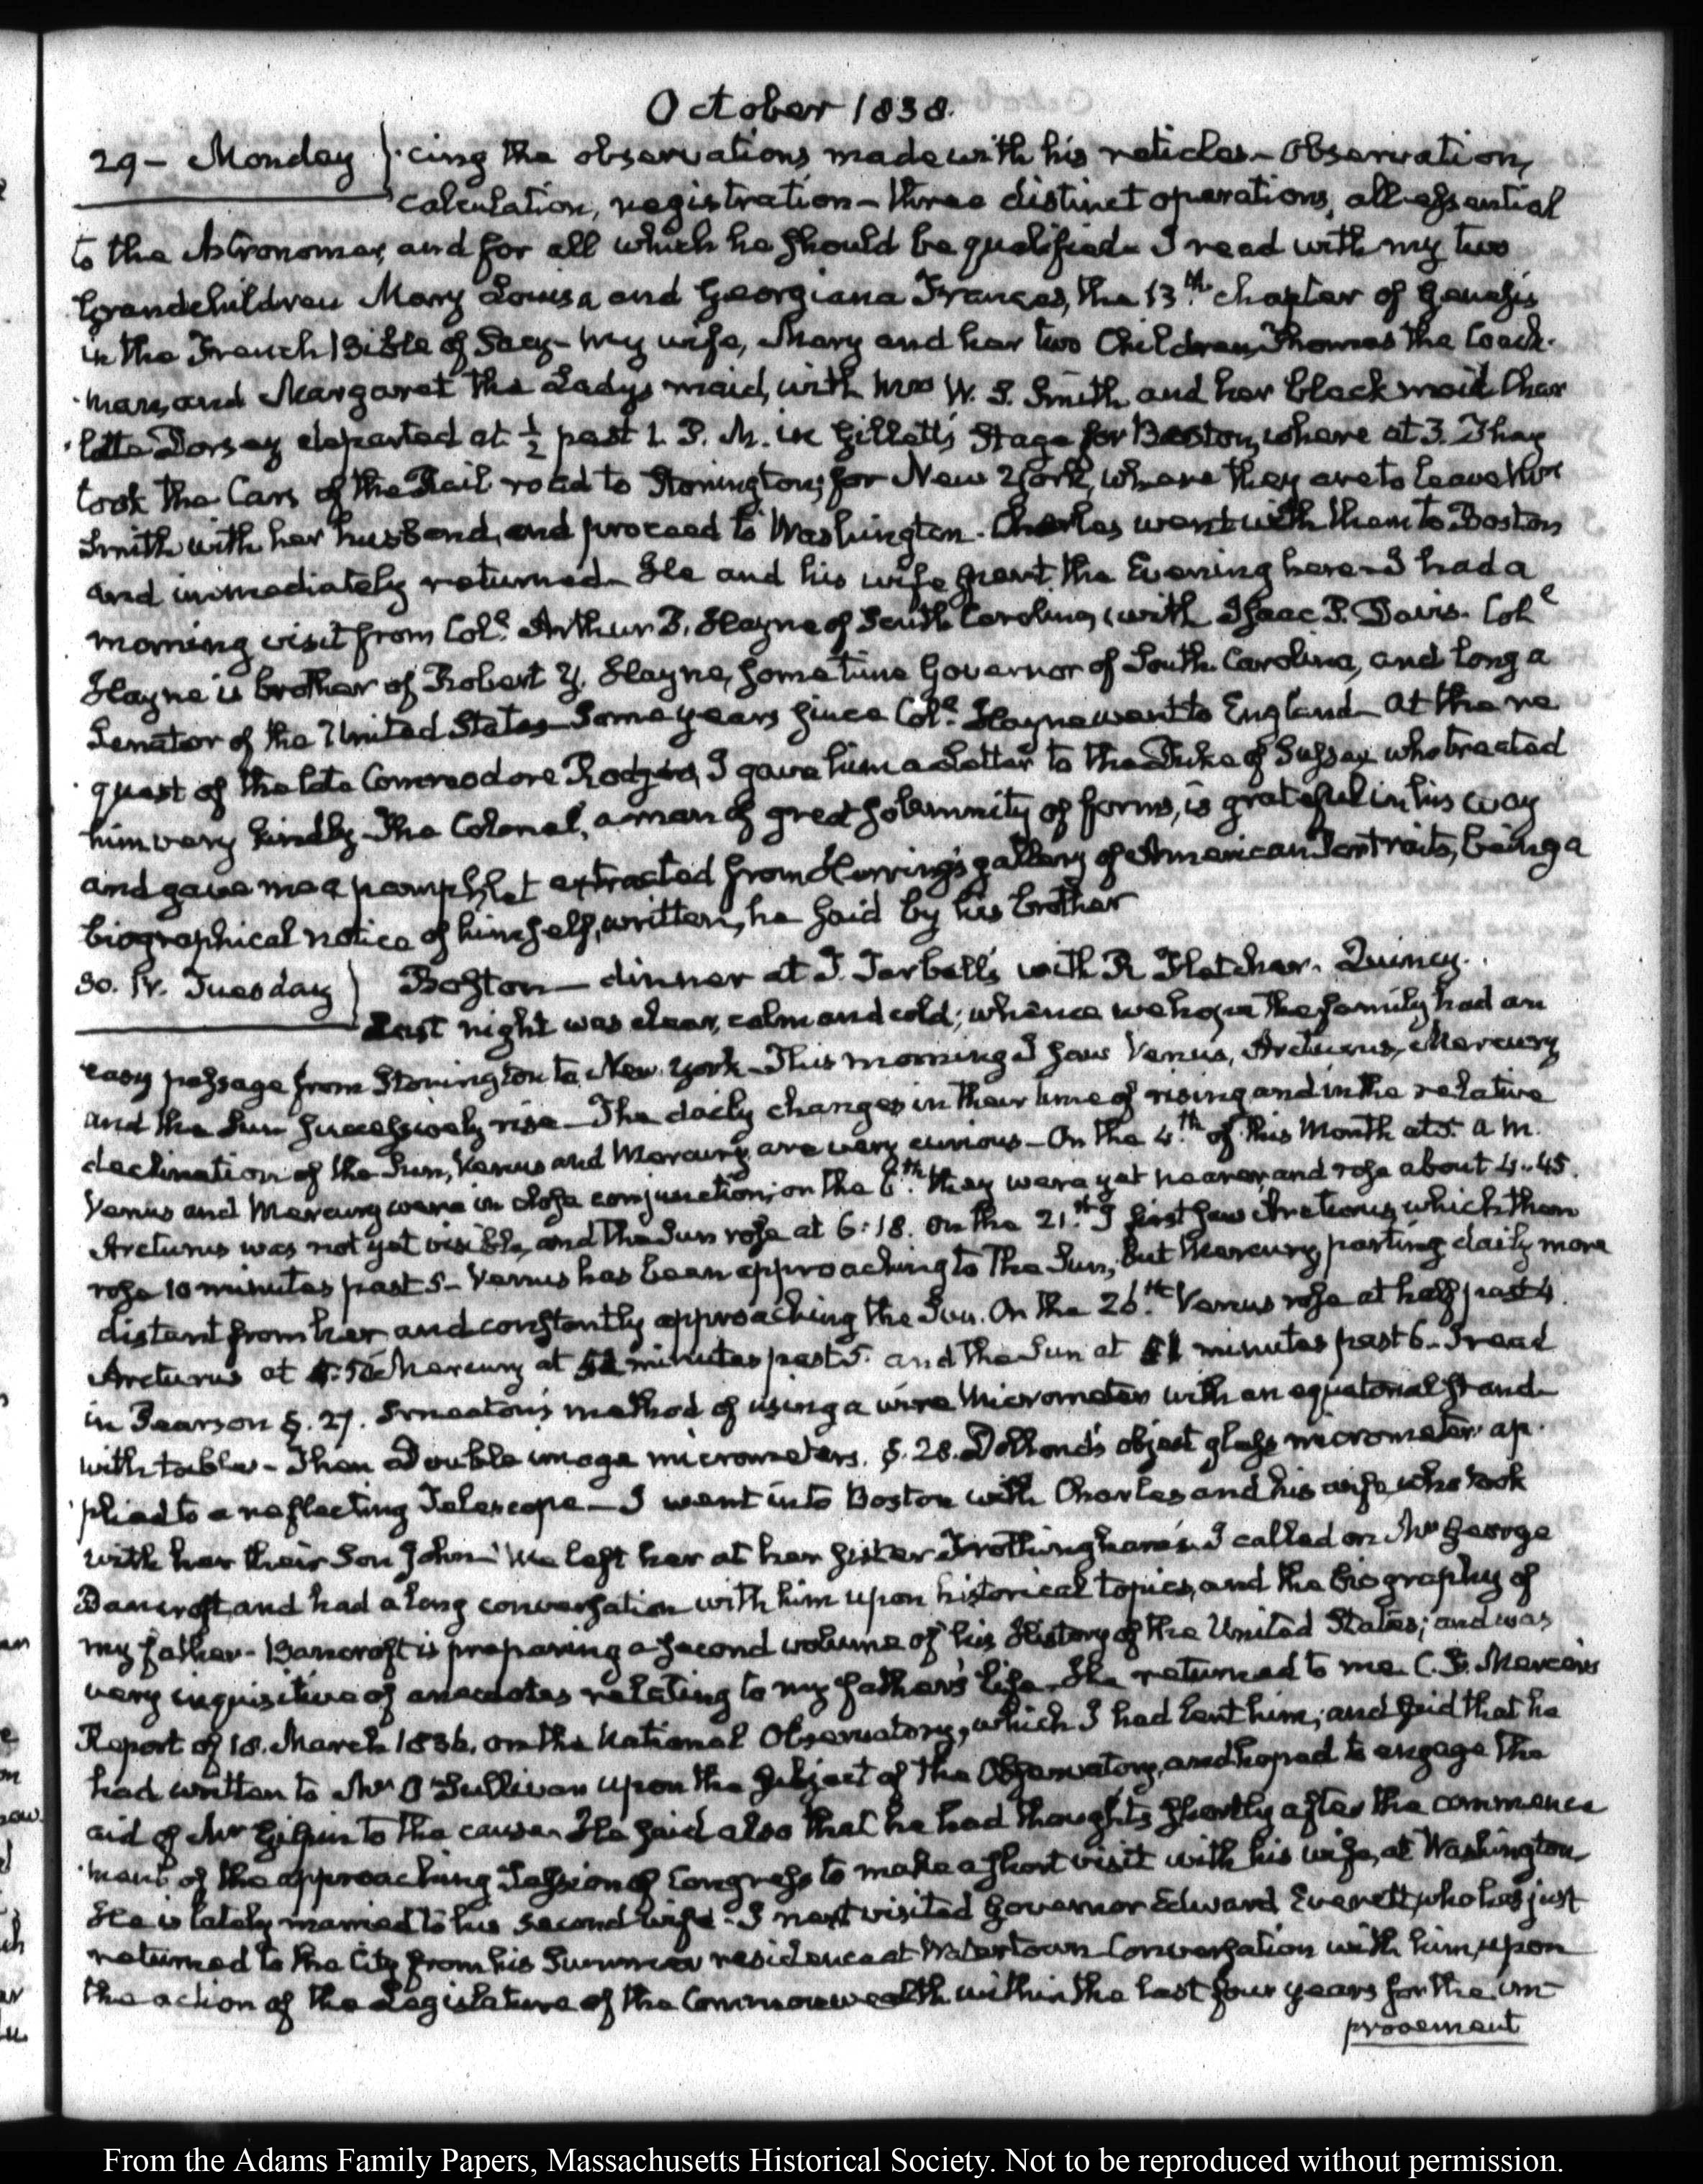 October 1838.
29 – Monday } cing the observations made with his reticles – Observation,
calculation, registration – three distinct operations, all essential
to the Astronomer, and for all which he should be qualified. I read with my two
Grandchildren Mary Louisa and Georgiana Frances, the 13th chapter of Genesis
in the French Bible of Sacy – My wife, Mary and her two Children, Thomas the Coach-
man, and Margaret the Lady's maid, with Mrs W. S. Smith and her black maid Char
lotte Dorsey departed at ½ past 1. P. M. in Gillett's Stage for Boston, where at 3. They
took the Cars of the Rail road to Stonington, for New York, where they are to leave Mrs
Smith with her husband, and proceed to Washington. Charles went with them to Boston
and immediately returned – He and his wife spent the Evening here – I had a
morning visit from Col.e Arthur P. Hayne of South Carolina, with Isaac P. Davis. Col.e
Hayne is brother of Robert Y. Hayne, sometime Governor of South Carolina, and long a
Senator of the United States – Some years since Col.e Hayne went to England – At the re
quest of the late Commodore Rodgers, I gave him a Letter to the Duke of Sussex who treated
him very kindly – The Colonel, a man of great solemnity of forms, is grateful in his way
and gave me a pamphlet extracted from Herring's gallery of American Portraits, being a
biographical notice of himself, written, he said by his brother
30. IV. Tuesday } Boston – dinner at J. Tarbell's with R Fletcher. Quincy.
Last night was clear, calm and cold; whence we hope the family had an
easy passage from Stonington to New York – This morning I saw Venus, Arcturus, Mercury
and the Sun successively rise – The daily changes in their time of rising and in the relative
declination of the Sun, Venus and Mercury are very curious – On the 4th of this Month at 5. a m.
Venus and Mercury were in close conjunction; on the 6th they were yet nearer, and rose about 4..45.
Arcturus was not yet visible, and the Sun rose at 6:18. On the 21st I first saw Arcturus, which then
rose 10 minutes past 5 – Venus has been approaching to the Sun, but Mercury, parting daily more
distant from her and constantly approaching the Sun. On the 26th Venus rose at half past 4.
Arcturus at 4:50 Mercury at minutes past 5. and the Sun at minutes past 6 – I read
in Pearson §. 27. Smeaton's method of using a wire Micrometer with an equatorial stand
with tables – Then Double image micrometers. §. 28. Dollond's object glass micrometer ap-
plied to a reflecting Telescope – I went into Boston with Charles and his wife, who took
with her their Son John – We left her at her Sister Frothingham's. I called on Mr George
Bancroft, and had a long conversation with him upon historical topics, and the biography of
my father – Bancroft is preparing a second volume of his History of the United States; and was
very inquisitive of anecdotes relating to my father's life – He returned to me C. F. Mercer's
Report of 18. March 1836. on the National Observatory, which I had lent him; and said that he
had written to Mr O'Sullivan upon the subject of the Observatory, and hoped to engage the
aid of Mr Gilpin to the cause – He said also that he had thoughts shortly after the commence
ment of the approaching Session of Congress to make a short visit with his wife, at Washington
He is lately married to his second wife – I next visited Governor Edward Everett, who has just
returned to the City from his Summer residence at Watertown – Conversation with him, upon
the action of the Legislature of the Commonwealth within the last four years for the im-
provement
From the Adams Family Papers, Massachusetts Historical Society. Not to be reproduced without permission.